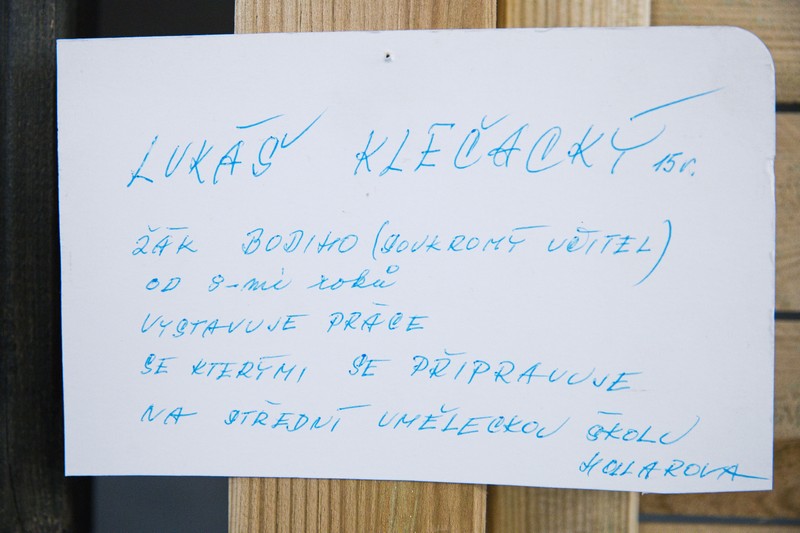 LUKÁŠ KLEČACKÝ 15r.
ŽÁK BODIHO (SOUKROMÝ UČITEL)
OD 9-mi roků
VYSTAVUJE PRÁCE
SE KTERÝMI SE PŘIPRAVUJE
NA STŘEDNÍ UMĚLECKOU ŠKOLU
HOLLAROVA